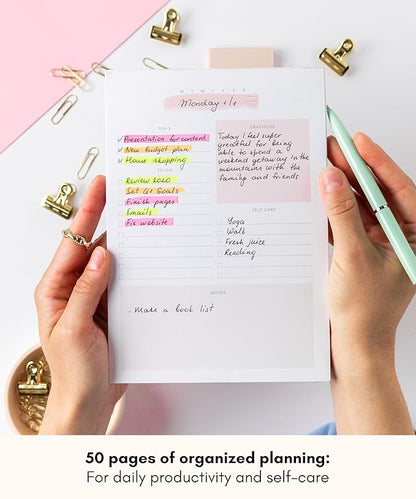 M T W T F S S
Monday 1/1
TOP 3
Presentation for content
New Budget plan
Home shopping
TO DO
Review 2020
Set Q1 Goals
Finish pages
Emails
Fix website
GRATITUDE
Today I feel super
greatful for being
able to spend a
weekend getaway in the
mountains with the
family and friends
SELF CARE
Yoga
Walk
Fresh juice
Reading
NOTES
. Make a book list
50 pages of organized planning:
For daily productivity and self-care